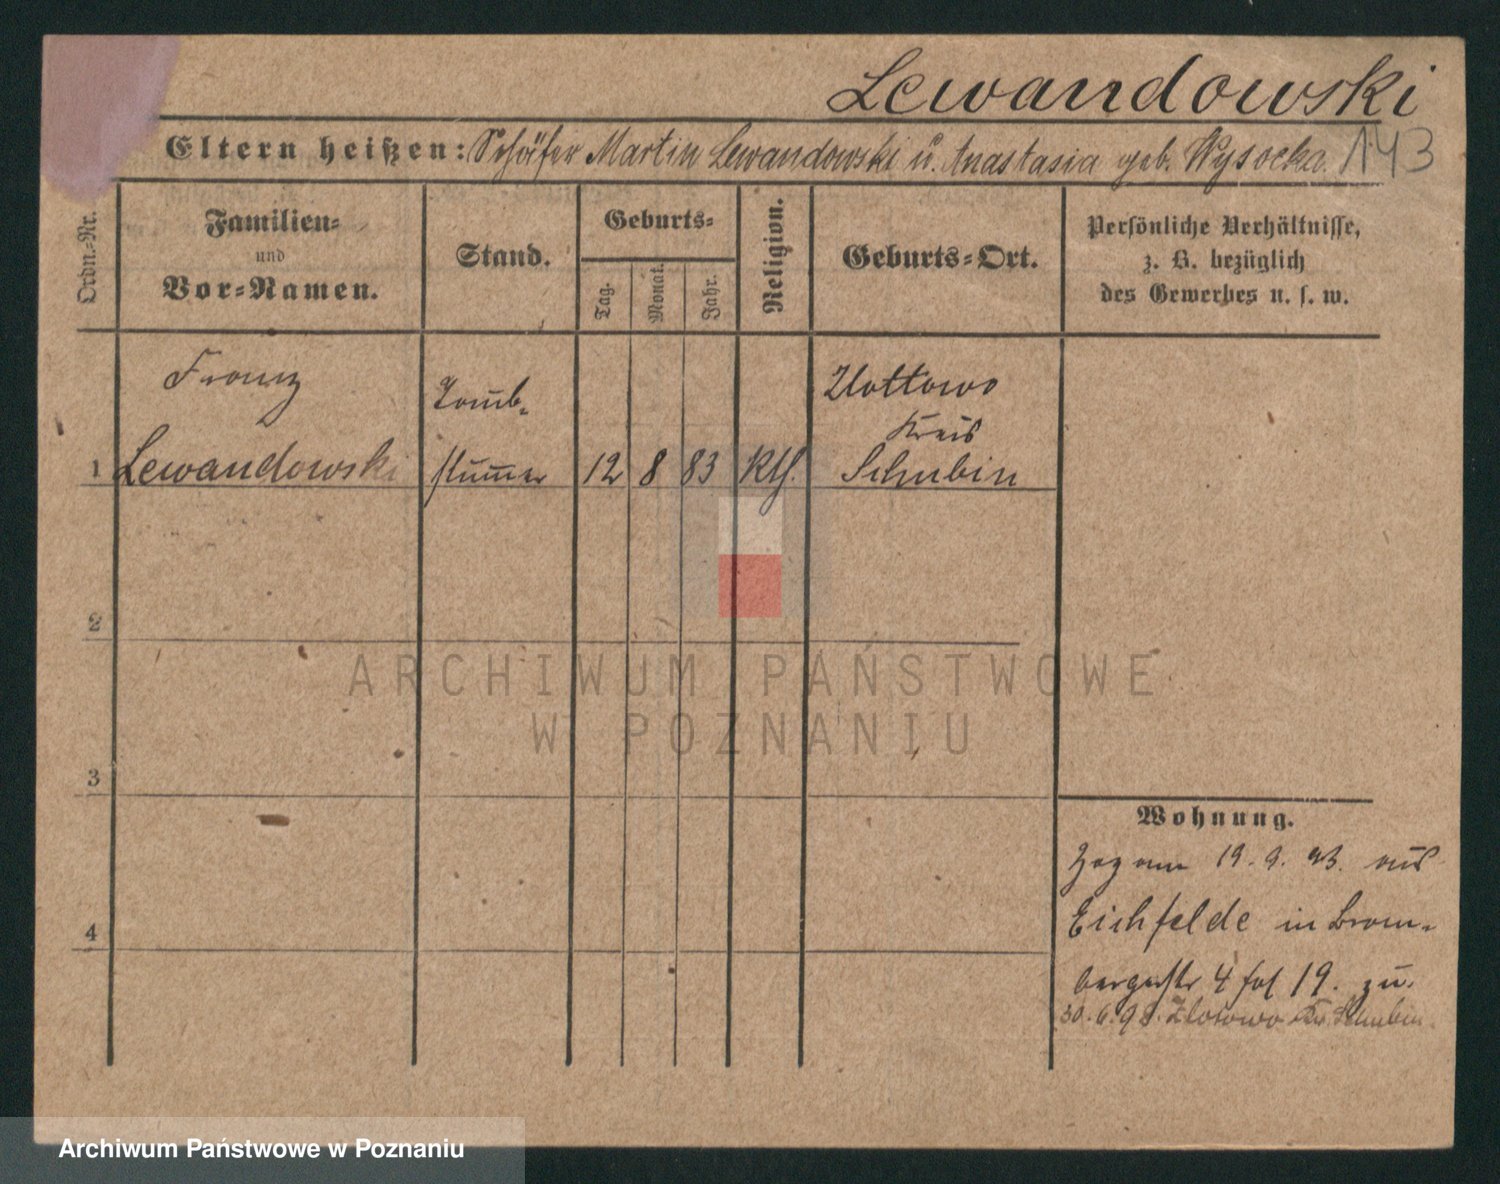 Lewandowski
Eltern heißen: Schäfer Martin Lewandowski u. Anastasia geb. Wysocka. 143
Ordn.-Nr.
Familien-
und
Vor-Namen.
Stand.
Geburts-
Tag.
Monat.
Jahr.
Religion.
Geburts-Ort.
Persönliche Verhältnisse,
z. B. bezüglich
des Gewerbes u. s. w.
Franz
Taub-
Kreis
1 Lewandowski stummer 12 8 83 kth. Schubin
2
3
4
Wohnung.
Zog am 19. 9. 93. aus
Eichfelde in Brom-
bergerstr 4 fol 19. zu.
30. 6. 98. Schubin
ARCHIWUM PAŃSTWOWE
W POZNANIU
Archiwum Państwowe w Poznaniu